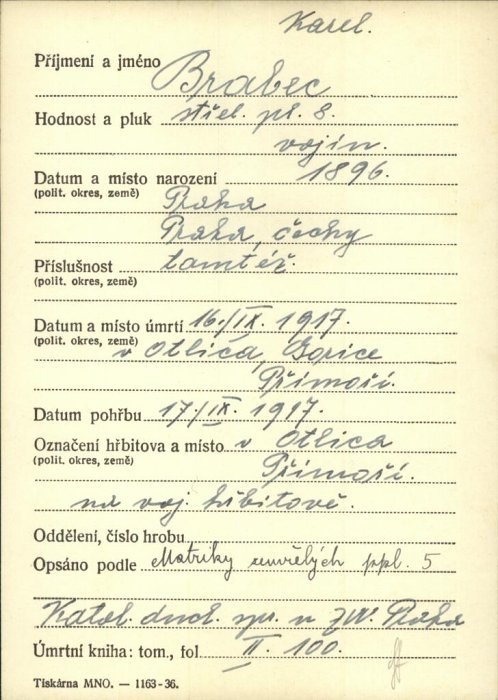 Karel.
Příjmení a jméno Brabec
Hodnost a pluk střel. pl. 8.
vojín.
Datum a místo narození 1896.
(polit. okres, země) Praha
Praha, Čechy
Příslušnost tamtéž.
(polit. okres, země)
Datum a místo úmrtí 16./IX. 1917.
(polit. okres, země) v Otlica, Gorice
Přímoří.
Datum pohřbu 17./IX. 1917.
Označení hřbitova a místo v Otlica
(polit. okres, země) Přímoří.
na voj. hřbitově.
Oddělení, číslo hrobu
Opsáno podle Matriky zemřelých ppl. 5
Katol. duch. spr. u ZVV. Praha
Úmrtní kniha: tom., fol. II. 100.
Tiskárna MNO. — 1163-36.